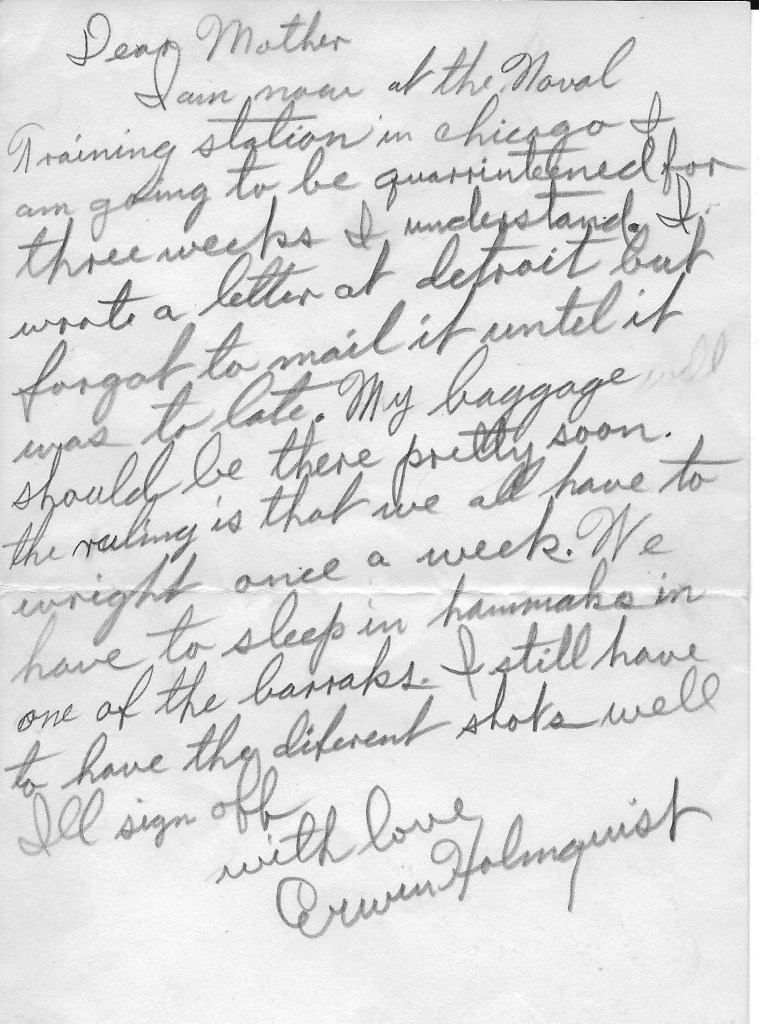 Dear Mother
I am now at the Naval
Training station in chicago I
am going to be quarrinteened for
three weeks I understand. I
wrote a letter at detroit but
forgot to mail it until it
was to late. My baggage will
should be there pretty soon.
the ruling is that we all have to
wright once a week. We
have to sleep in hammaks in
one of the barraks. I still have
to have the diferent shots well
I'll sign off
with love
Erwin Holmquist